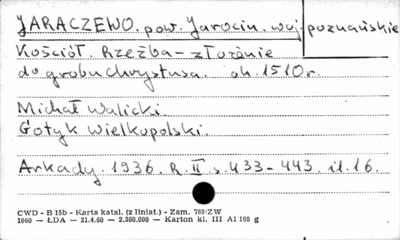 JARACZEWO. pow. Jarocin. woj. poznańskie
Kościół. Rzeźba - złożenie
do grobu Chrystusa. ok. 1510 r.
Michał Walicki.
Gotyk Wielkopolski.
Arkady. 1936. R. II s. 433-443. il. 16.
CWD - B 15b - Karta katal. (z liniat.) - Zam. 788/ZW
1060 — ŁDA — 21.4.60 — 2.360.000 — Karton kl. III A1 160 g